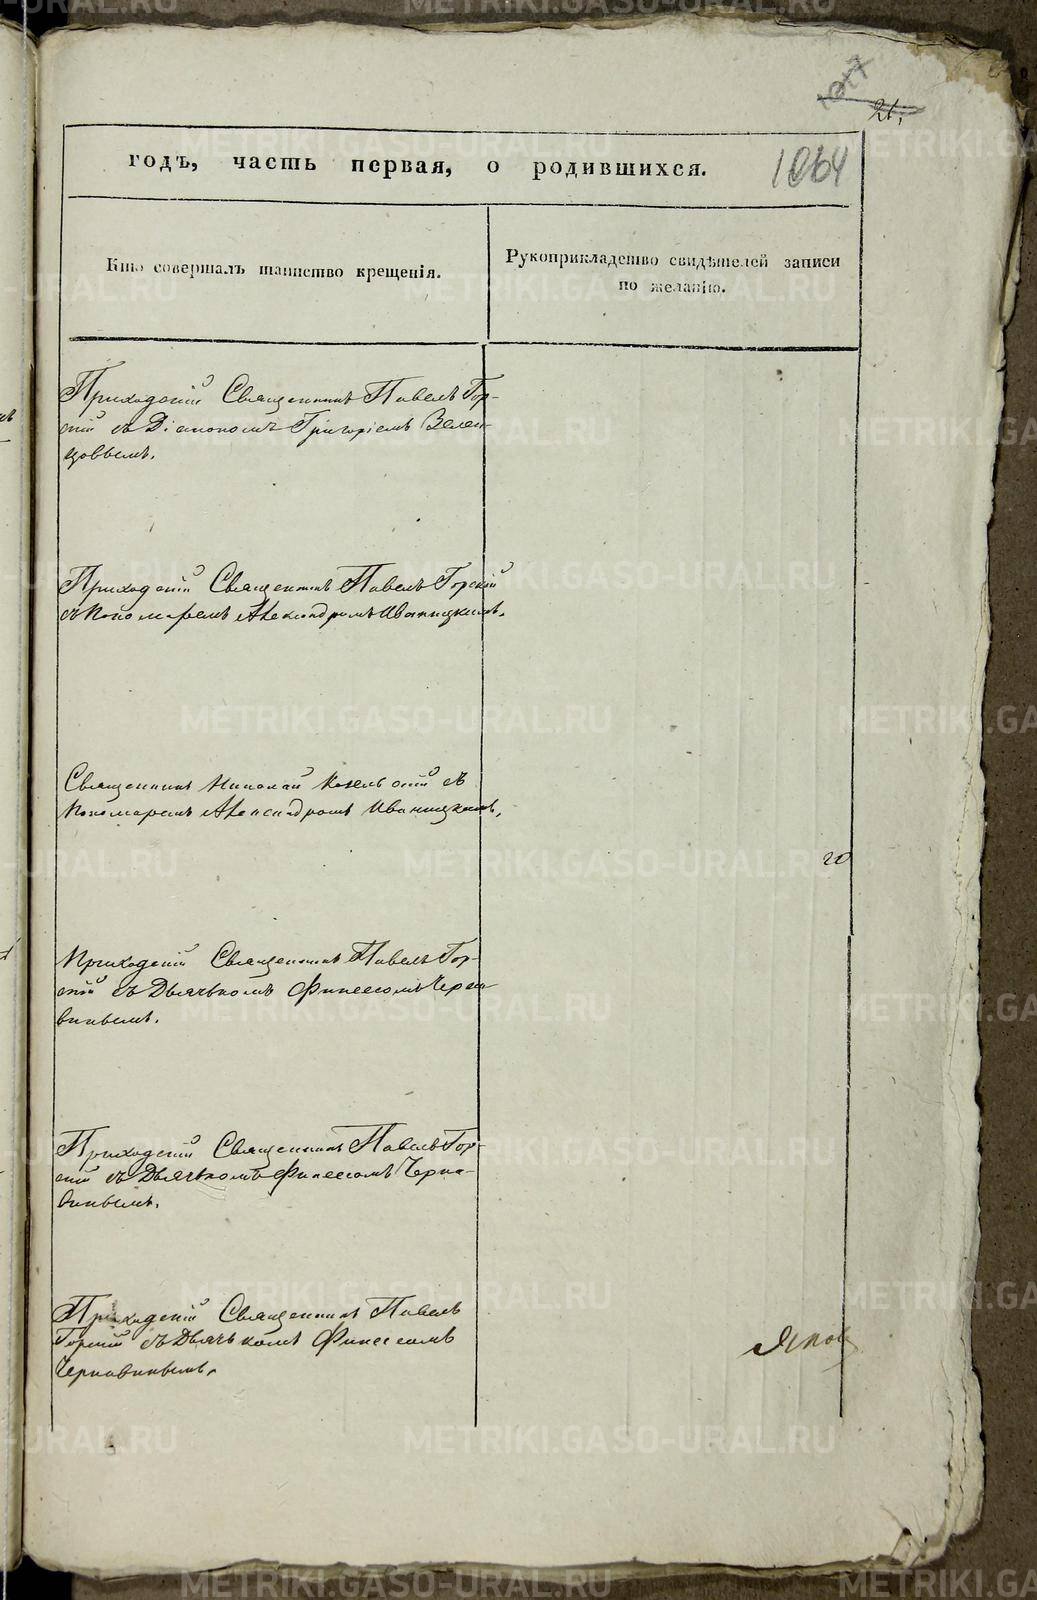 21,
годъ, часть первая, о родившихся.
1064
Кто совершалъ таинство крещенія.
Рукоприкладство свидѣтелей записи
по желанію.
Приходскій Священникъ Павелъ Гор-
скій съ Діакономъ Григоріемъ Зелен-
цовымъ.
Приходскій Священникъ Павелъ Горскій
съ Пономаремъ Александромъ Иваницкимъ.
Священникъ Николай Козельскій съ
Пономаремъ Александромъ Иваницкимъ.
го
Приходскій Священникъ Павелъ Гор-
скій съ Дьячькомъ Финеесомъ Черна-
винымъ.
Приходскій Священникъ Павелъ Гор-
скій съ Дьячькомъ Финеесомъ Черна-
винымъ.
Приходскій Священникъ Павелъ
Горскій съ Дьячькомъ Финеесомъ
Чернавинымъ.
METRIKI.GASO-URAL.RU